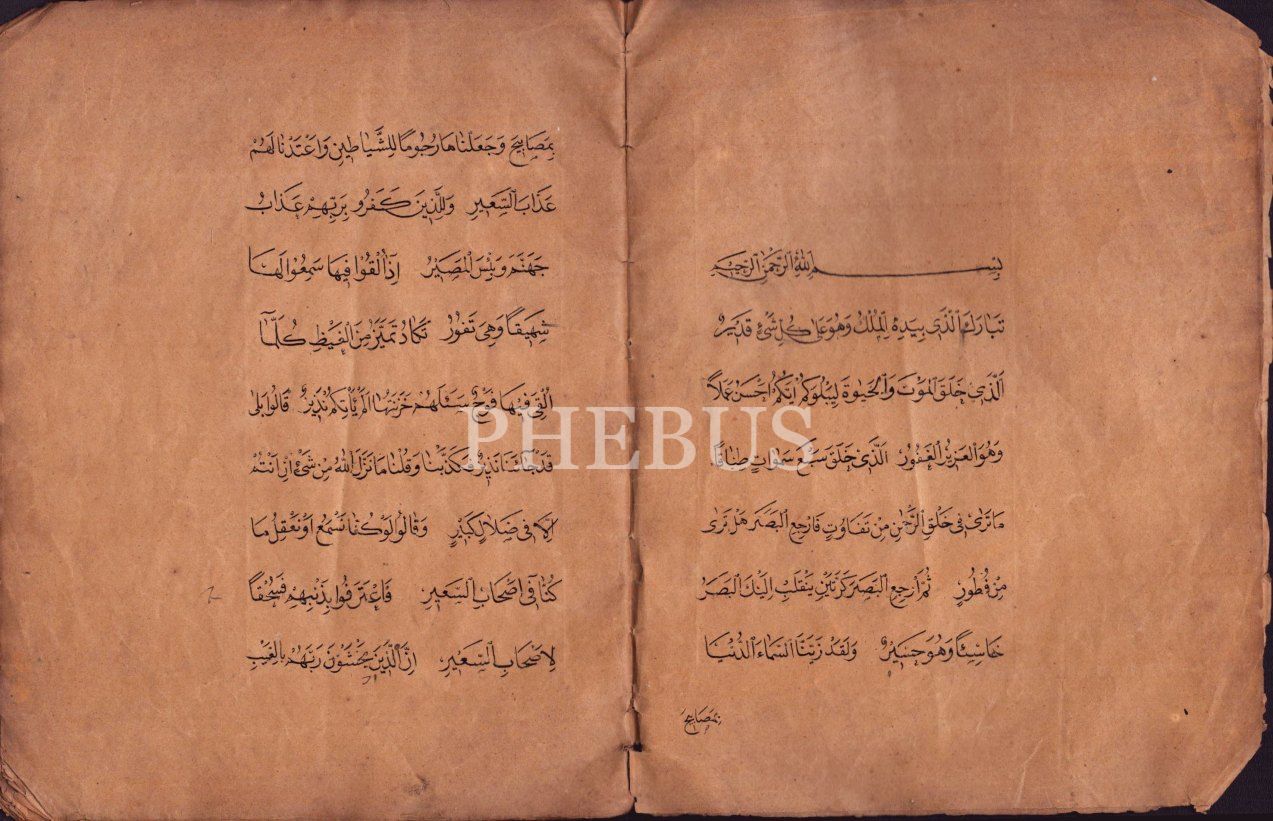 بِسْمِ اللّٰهِ الرَّحْمٰنِ الرَّحِيمِ
تَبَارَكَ الَّذٖي بِيَدِهِ الْمُلْكُ وَهُوَ عَلٰى كُلِّ شَيْءٍ قَدٖيرٌ
اَلَّذٖي خَلَقَ الْمَوْتَ وَالْحَيٰوةَ لِيَبْلُوَكُمْ اَيُّكُمْ اَحْسَنُ عَمَلاً
وَهُوَ الْعَزٖيزُ الْغَفُورُ اَلَّذٖي خَلَقَ سَبْعَ سَمٰوَاتٍ طِبَاقًا
مَا تَرٰى فٖي خَلْقِ الرَّحْمٰنِ مِنْ تَفَاوُتٍ فَارْجِعِ الْبَصَرَ هَلْ تَرٰى
مِنْ فُطُورٍ ثُمَّ ارْجِعِ الْبَصَرَ كَرَّتَيْنِ يَنْقَلِبْ اِلَيْكَ الْبَصَرُ
خَاسِئًا وَهُوَ حَسٖيرٌ وَلَقَدْ زَيَّنَّا السَّمَاءَ الدُّنْيَا
بِمَصَابٖيحَ
بِمَصَابٖيحَ وَجَعَلْنَاهَا رُجُومًا لِلشَّيَاطٖينِ وَاَعْتَدْنَا لَهُمْ
عَذَابَ السَّعٖيرِ وَلِلَّذٖينَ كَفَرُو بِرَبِّهِمْ عَذَابُ
جَهَنَّمَ وَبِئْسَ الْمَصٖيرُ اِذَا اُلْقُوا فٖيهَا سَمِعُوا لَهَا
شَهٖيقًا وَهِيَ تَفُورُ تَكَادُ تَمَيَّزُ مِنَ الْغَيْظِ كُلَّمَا
اُلْقِيَ فٖيهَا فَوْجٌ سَئَلَهُمْ خَزَنَتُهَا اَلَمْ يَأْتِكُمْ نَذٖيرٌ قَالُوا بَلٰى
قَدْ جَائَنَا نَذٖيرٌ فَكَذَّبْنَا وَقُلْنَا مَا نَزَّلَ اللّٰهُ مِنْ شَيْءٍ اِنْ اَنْتُمْ
اِلَّا فٖي ضَلَالٍ كَبٖيرٍ وَقَالُوا لَوْ كُنَّا نَسْمَعُ اَوْ نَعْقِلُ مَا
كُنَّا فٖي اَصْحَابِ السَّعٖيرِ فَاعْتَرَفُوا بِذَنْبِهِمْ فَسُحْقًا
لِاَصْحَابِ السَّعٖيرِ اِنَّ الَّذٖينَ يَخْشَوْنَ رَبَّهُمْ بِالْغَيْبِ
PHEBUS